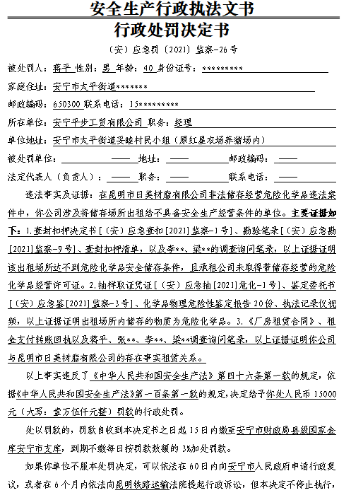 安全生产行政执法文书
行政处罚决定书
（安）应急罚〔2021〕监察-26号
被处罚人：蒋平 性别：男 年龄：40 身份证号：*********
家庭住址：安宁市太平街道*******
邮政编码：650300 联系电话：15*********
所在单位：安宁平步工贸有限公司 职务：经理
单位地址：安宁市太平街道妥睦村民小组（原红星农场养猪场内）
被处罚单位： —— 地址： —— 邮政编码： ——
法定代表人（负责人）： —— 职务： —— 联系电话： ——
违法事实及证据：在昆明市日美材磨有限公司非法储存经营危险化学品违法案
件中，你公司涉及将储存场所出租给不具备安全生产经营条件的单位。主要证据如
下：1.查封扣押决定书[（安）应急查扣[2021]危化-1号]、勘验笔录[（安）应急勘
[2021]监察-9号]、查封扣押清单，以及李**、梁**的调查询问笔录，以上证据证明
该出租场所达不到危险化学品安全储存条件，且承租公司未取得带储存经营的危险
化学品经营许可证。2.抽样取证凭证[（安）应急抽[2021]危化-1号]、鉴定委托书
[（安）应急鉴[2021]监察-3号]、化学品物理危险性鉴定报告20份、执法记录仪视
频，以上证据证明出租场所内储存的物质为危险化学品。3.《厂房租赁合同》、租
金支付转账回执以及蒋平、张**、李**、梁**调查询问笔录，以上证据证明你公司
与昆明市日美材磨有限公司的存在事实租赁关系。
以上事实违反了《中华人民共和国安全生产法》第四十六条第一款的规定，依
据《中华人民共和国安全生产法》第一百条第一款的规定，决定给予你处人民币15000
元（大写：壹万伍仟元整）罚款的行政处罚。
处以罚款的，罚款自收到本决定书之日起15日内缴至安宁市财政局县级国家金
库安宁市支库，到期不缴每日按罚款数额的3%加处罚款。
如果你单位不服本处罚决定，可以依法在60日内向安宁市人民政府申请行政复
议，或者在6个月内依法向昆明铁路运输法院提起行政诉讼，但本决定不停止执行，